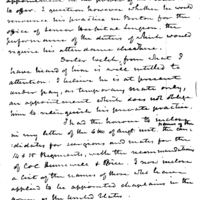 to offer. I question however whether he would
renounce his practice in Boston for the
office of Senior Hospital Surgeon, the
performance of the duties of which would
require his attendance elsewhere.
Doctor Welch from what I
have heard of him is well entitled to
attention. I believe he is at present
under pay, as temporary mate only,
an appointment which does not oblige
him to relinquish his private practice.
I had the honour to inclose
in my letter of the 6th of Augt. unit. the can-
didates for surgeons and mates for the
14 & 15 Regiments, with the recommendations
of Cols. & Rice. I now inclose
a list of the names of those who have
applied to be appointed chaplains in the
of the United States